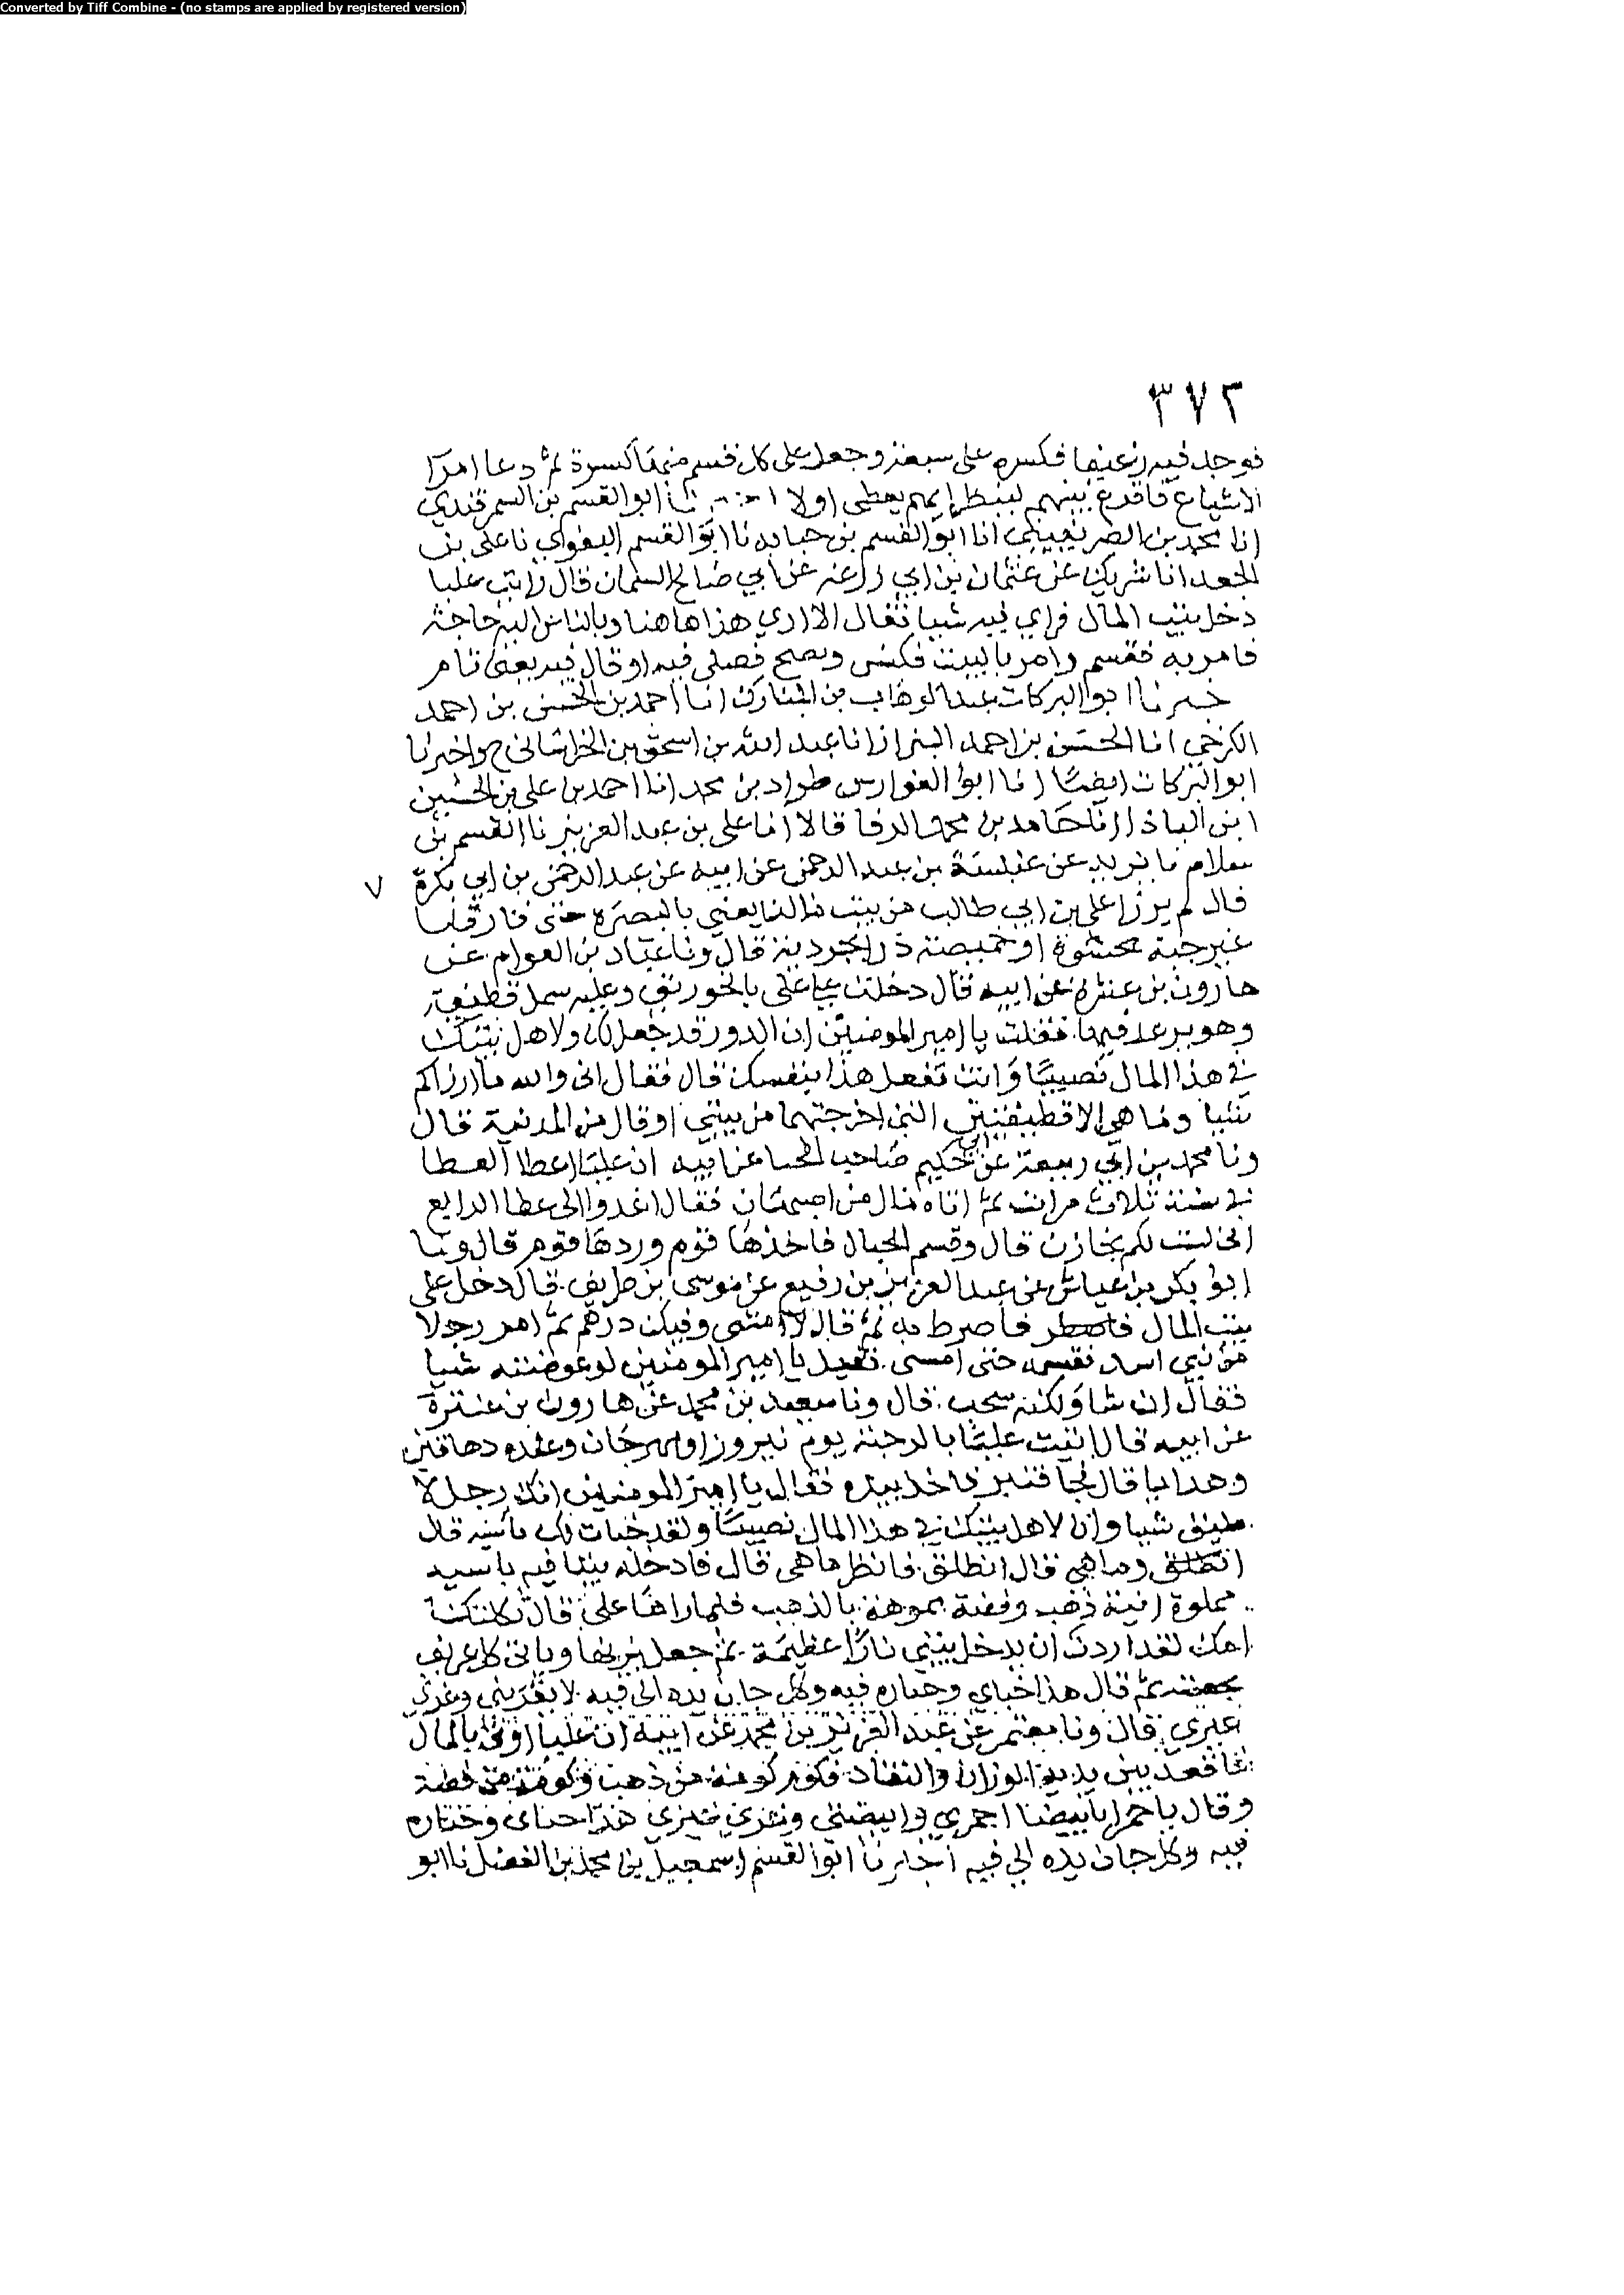 Converted by Tiff Combine - (no stamps are applied by registered version)
٣٧٢
فوجد فيه رغيفا فكسره على سبعة وجعل على كل قسم منها كسرة ثم دعا امرآ
الاسباع فاقرع بينهم لينظر ايهم يعطى اولا نا ابو القسم بن السمرقندي
انا محمد بن الصريفيني انا ابو القسم بن حبابه نا ابو القسم البغوي نا علي بن
الجعد انا شريك عن عثمان بن ابي زرعه عن ابي صالح السمان قال رايت عليا
دخل بيت المال فراي فيه شيا فقال الا اري هذا هاهنا وبالناس اليه حاجة
فامر به فقسم وامر بالبيت فكنس ونضح فصلى فيه او قال فيه يعني نام
خبرنا ابو البركات عبد الوهاب بن المبارك انا احمد بن الحسن بن احمد
الكرخي انا الحسن بن احمد البزاز انا عبد الله بن اسحق بن الخراساني ح واخبرنا
ابو البركات ايضًا انا ابو الفوارس طراد بن محمد انا احمد بن علي بن الحسين
ابن الباذا انا حامد بن محمد الرفا قالا انا علي بن عبد العزيز نا القسم بن
سلام نا يزيد عن عنبسة بن عبد الرحمن عن ابيه عن عبد الرحمن بن ابي بكرة ٧
قال لم يرزا علي بن ابي طالب من بيت مالنا يعني بالبصره حتى فارقنا
غير جبة محشوة او خميصة درابجردية قال ونا عباد بن العوام عن
هارون بن عنترة عن ابيه قال دخلت على علي بالخورنق وعليه سمل قطيفة
وهو يرعد فيها فقلت يا امير المومنين ان الله قد جعل لك ولاهل بيتك
في هذا المال نصيبًا وانت تفعل هذا بنفسك قال فقال اني والله ما ارزاكم
شيا وما هي الا قطيفتي التي اخرجتها من بيتي او قال من المدينة قال
ونا محمد بن ابي ربيعة عن ابي حكيم صاحب الحنا عن ابيه ان عليًا اعطا العطا
في سنة ثلاث مرات ثم اتاه مال من اصبهان فقال اغدوا الى عطا الرابع
اني لست لكم بخازن قال وقسم الحبال فاخذها قوم وردها قوم قال ونا
ابو بكر بن عياش عن عبد العزيز بن رفيع عن موسى بن طريف قال دخل علي
بيت المال فاضرط به ثم قال لا امسى وفيك درهم ثم امر رجلا
من بني اسد فقسمه حتى امسى فقيل يا امير المومنين لو عوضته شيا
فقال ان شا ولكنه سحت قال ونا سعيد بن محمد عن هارون بن عنترة
عن ابيه قال اتيت عليًا بالرحبة يوم نيروز او مهرجان وعنده دهاقين
وهدايا قال فجا قنبر فاخذ بيده فقال يا امير المومنين انك رجل لا
تليق شيا وان لاهل بيتك في هذا المال نصيبًا ولقد خبات لك خبيئة قال
وما هي قال انطلق فانظر ما هي قال فادخله بيتا فيه باسنة
مملوة انية ذهب وفضة مموهة بالذهب فلما راها علي قال ثكلتك
امك لقد اردت ان يدخل بيتي نارًا عظيمة ثم جعل يزنها وياتي كل عريف
بحصته ثم قال هذا جناي وخياره فيه وكل جان يده الى فيه لا تغريني وغري
غيري قال ونا معتمر عن عبد العزيز بن محمد عن ابيه ان عليا اوتي بالمال
فاقعد بين يديه الوزان والنقاد فكوم كومة من ذهب وكومة من فضة
وقال يا حمرا يا بيضا احمري وابيضي وغري غيري هذا جناي وخياره
فيه وكل جان يده الي فيه اخبرنا ابو القسم اسمعيل بن محمد بن الفضل نا ابو